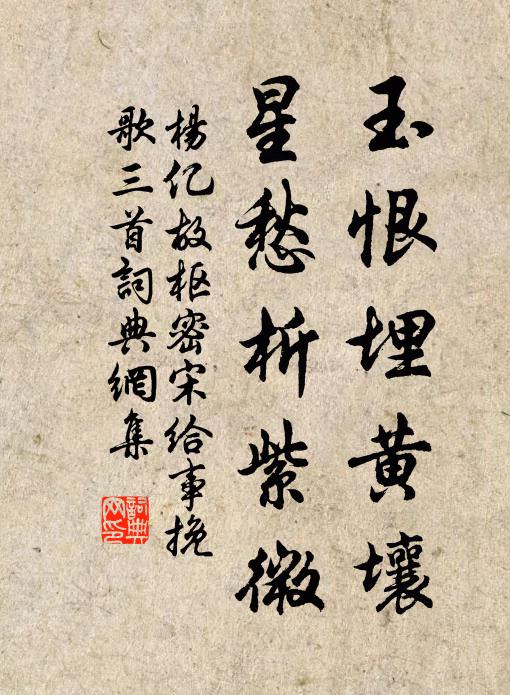 玉恨埋黄壤
星愁析紫微
杨亿故枢密宋给事挽
歌三首詞典網集
詞典
网印